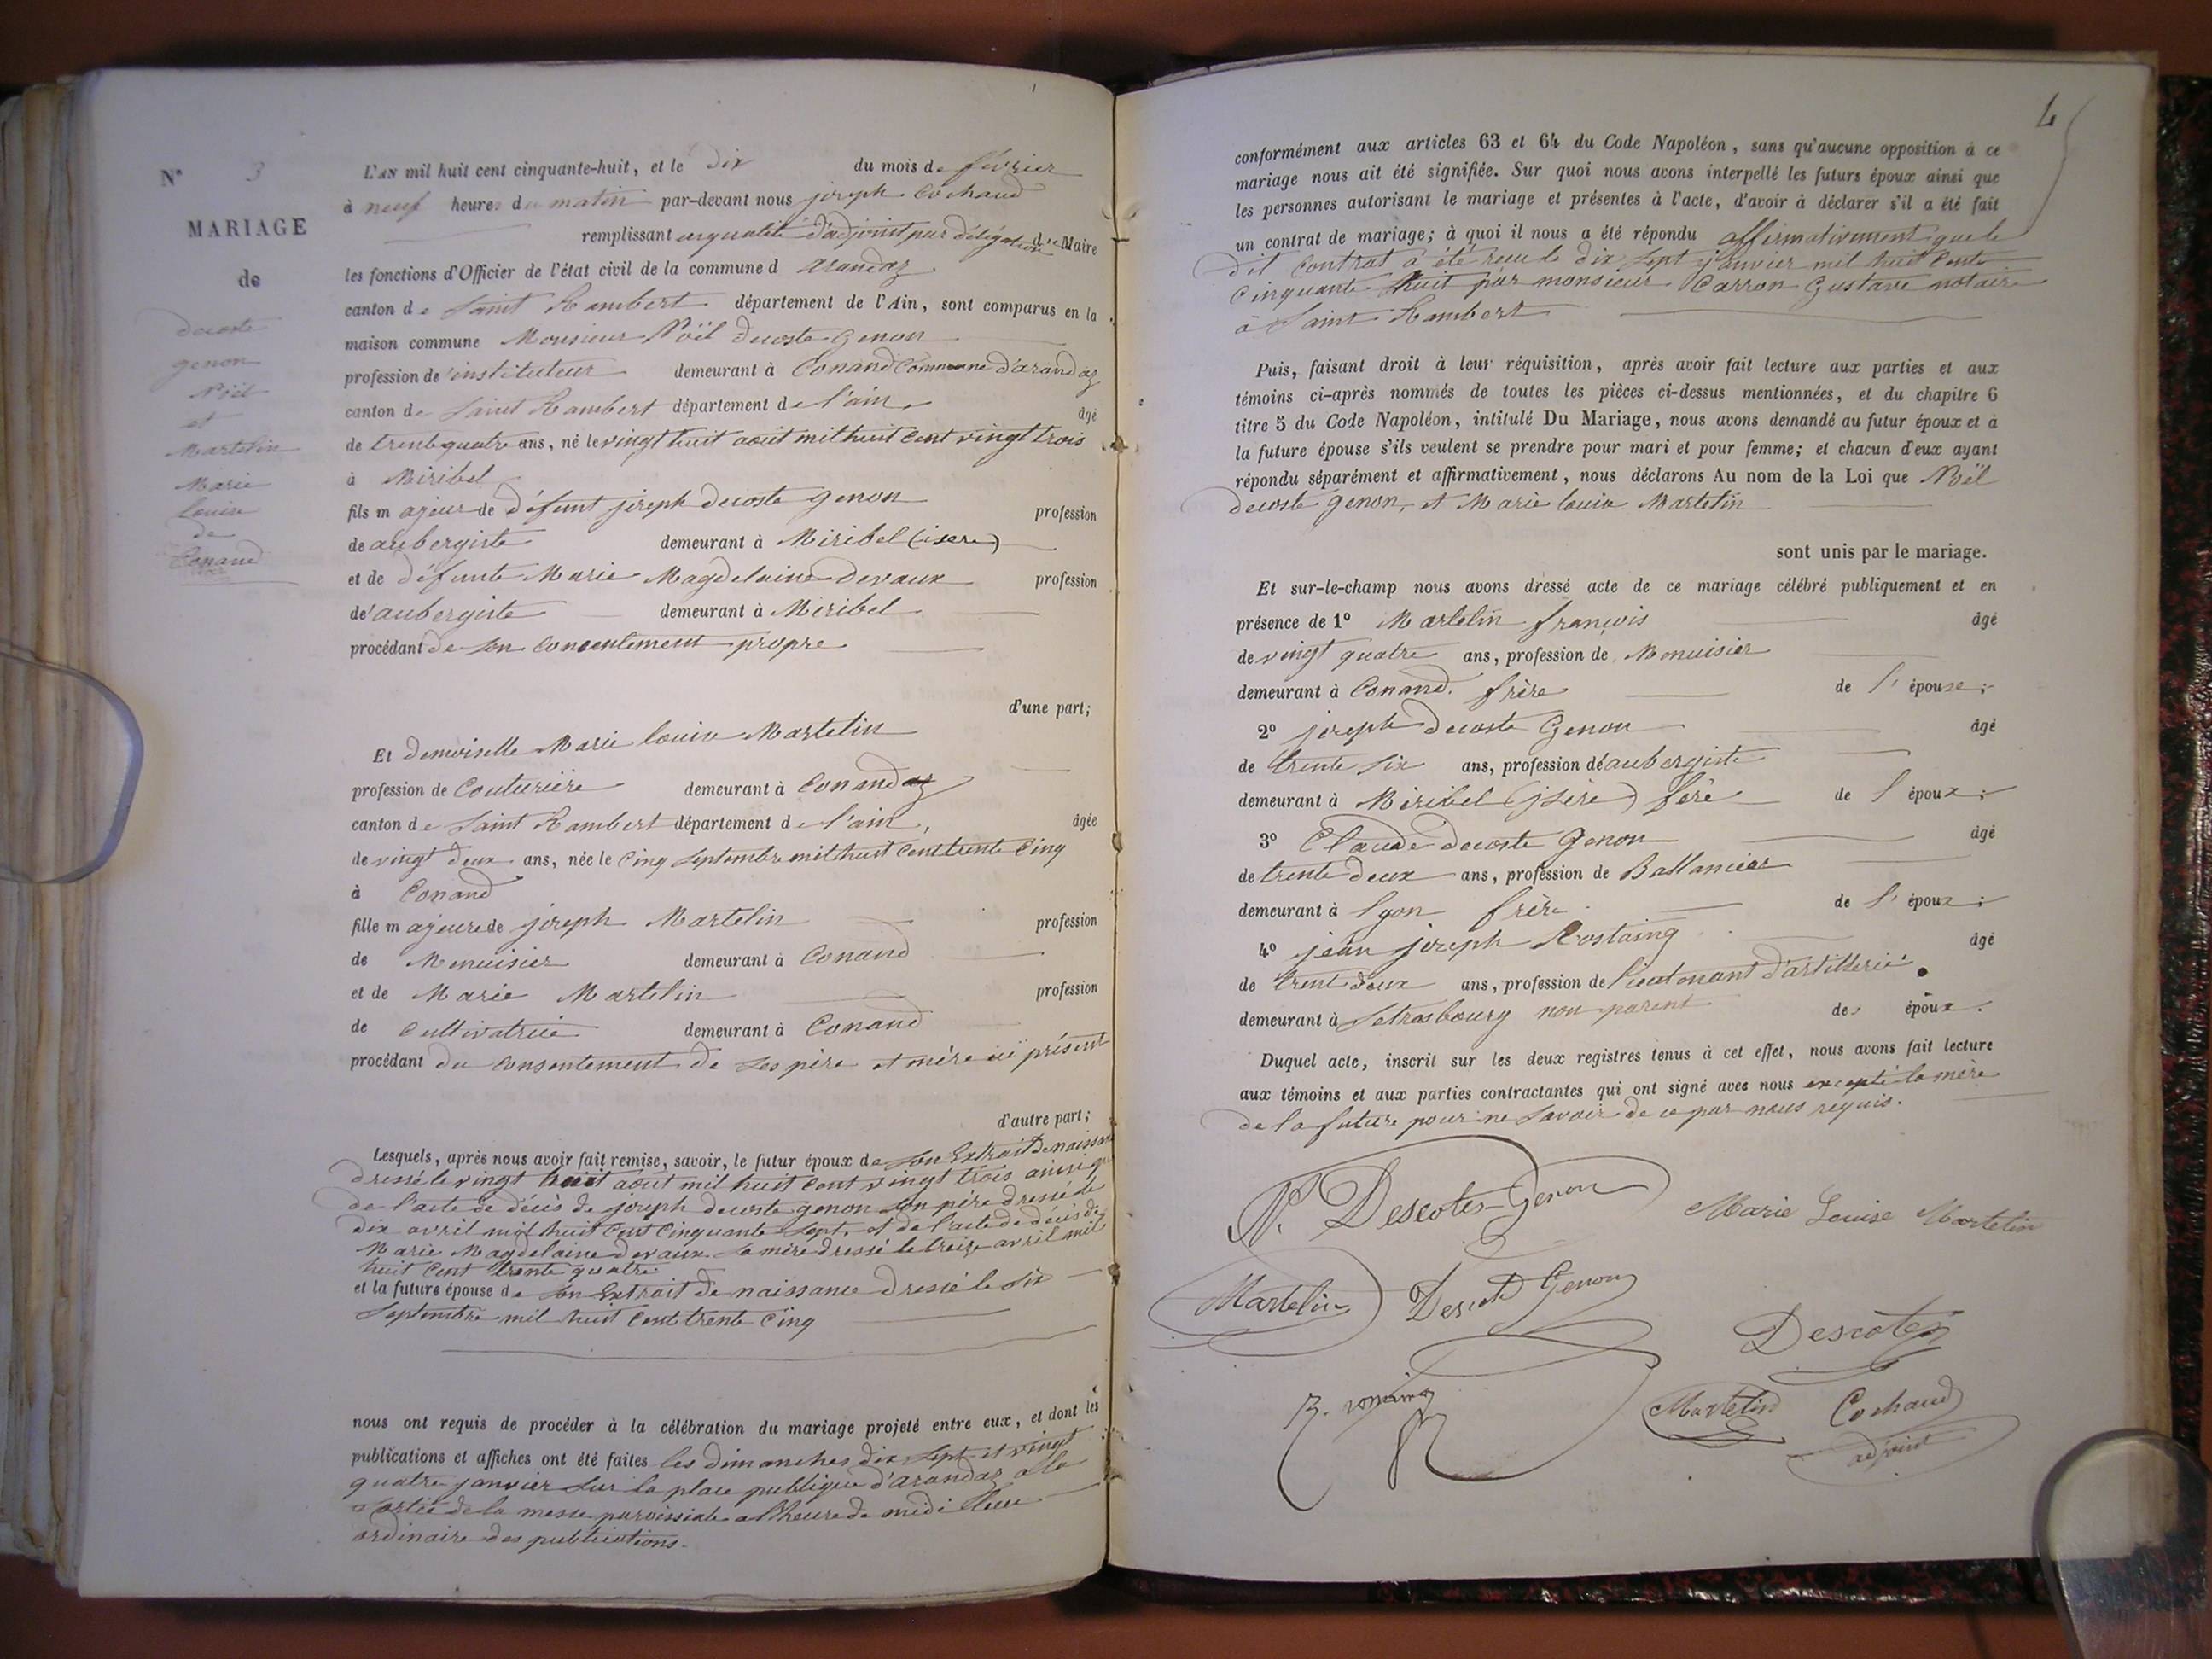 N° 3
MARIAGE
de
decoste
genon
Noël
et
Martelin
Marie
louise
de
Conand
L'AN mil huit cent cinquante-huit, et le dix du mois de février
à neuf heures du matin par-devant nous joseph Cochaud
remplissant en qualité d'adjoint par délégation du Maire
les fonctions d'Officier de l'état civil de la commune d arandaz
canton de Saint Rambert département de l'Ain, sont comparus en la
maison commune Monsieur Noël decoste genon
profession de instituteur demeurant à Conand Commune d'arandaz
canton de Saint Rambert département de l'ain, âgé
de trente quatre ans, né le vingt huit aout mil huit cent vingt trois
à Miribel
fils majeur de défunt joseph decoste genon profession
de aubergiste demeurant à Miribel (isere)
et de défunte Marie Magdelaine devaux profession
de aubergiste demeurant à Miribel
procédant de son consentement propre
d'une part;
Et demoiselle Marie louise Martelin
profession de Couturière demeurant à Conand
canton de Saint Rambert département de l'ain, âgée
de vingt deux ans, née le cinq septembre mil huit cent trente cinq
à Conand
fille majeure de joseph Martelin profession
de Menuisier demeurant à Conand
et de Marie Martelin profession
de cultivatrice demeurant à Conand
procédant du consentement de ses père et mère ici présent
d'autre part;
Lesquels, après nous avoir fait remise, savoir, le futur époux de son Extrait de naissan
dressé le vingt huit aout mil huit cent vingt trois ainsi que
de l'acte de décès de joseph decoste genon son père dressé le
dix avril mil huit cent cinquante sept, et de l'acte de décès de
Marie Magdelaine devaux sa mère dressé le treize avril mil
huit cent trente quatre
et la future épouse de son Extrait de naissance dressé le six
Septembre mil huit cent trente cinq
nous ont requis de procéder à la célébration du mariage projeté entre eux, et dont les
publications et affiches ont été faites les dimanches dix sept et vingt
quatre janvier sur la place publique d'arandaz a la
sortie de la messe paroissiale a l'heure de midi lieu
ordinaire des publications.
4
conformément aux articles 63 et 64 du Code Napoléon, sans qu'aucune opposition à ce
mariage nous ait été signifiée. Sur quoi nous avons interpellé les futurs époux ainsi que
les personnes autorisant le mariage et présentes à l'acte, d'avoir à déclarer s'il a été fait
un contrat de mariage; à quoi il nous a été répondu affirmativement que le
dit contrat a été reçu le dix sept janvier mil huit cent
cinquante huit par monsieur Carron Gustave notaire
à Saint Rambert
Puis, faisant droit à leur réquisition, après avoir fait lecture aux parties et aux
témoins ci-après nommés de toutes les pièces ci-dessus mentionnées, et du chapitre 6
titre 5 du Code Napoléon, intitulé Du Mariage, nous avons demandé au futur époux et à
la future épouse s'ils veulent se prendre pour mari et pour femme; et chacun d'eux ayant
répondu séparément et affirmativement, nous déclarons Au nom de la Loi que Noël
decoste genon, et Marie louise Martelin
sont unis par le mariage.
Et sur-le-champ nous avons dressé acte de ce mariage célébré publiquement et en
présence de 1° Martelin françois âgé
de vingt quatre ans, profession de Menuisier
demeurant à Conand. frère de l'épouse;
2° joseph decoste Genon âgé
de trente six ans, profession de aubergiste
demeurant à Miribel (Isère) fère de l'époux;
3° Claude decoste genon âgé
de trente deux ans, profession de Ballancier
demeurant à lyon frère de l'époux;
4° jean joseph Rostaing âgé
de trent deux ans, profession de lieutenant d'artillerie
demeurant à Setrasbourg non parent des époux.
Duquel acte, inscrit sur les deux registres tenus à cet effet, nous avons fait lecture
aux témoins et aux parties contractantes qui ont signé avec nous excepté la mère
de la future pour ne savoir de ce par nous requis.
N. Descotes-Genon Marie Louise Martelin
Martelin Genon
Descotes
Martelin Cochaud
adjoint